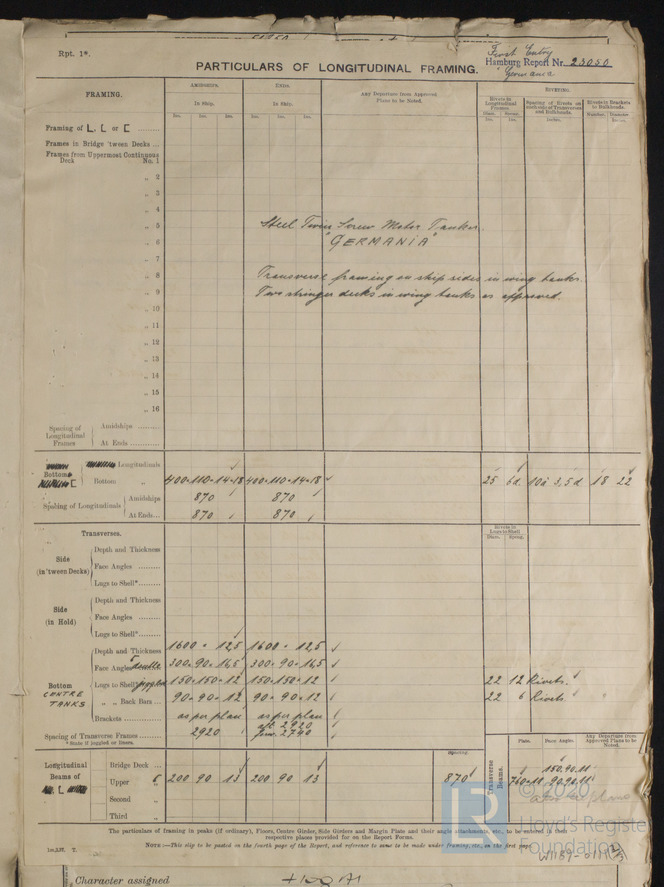 Rpt. 1*.
First Entry
PARTICULARS OF LONGITUDINAL FRAMING.
Hamburg Report Nr. 23050
Germania
FRAMING.
AMIDSHIPS.
ENDS.
Any Departure from Approved Plans to be Noted.
RIVETING.
In Ship.
In Ship.
Rivets in Longitudinal Frames.
Spacing of Rivets on each side of Transverses and Bulkheads.
Rivets in Brackets to Bulkheads.
Framing of L, L or [
Frames in Bridge 'tween Decks ...
Frames from Uppermost Continuous
Deck No. 1
„ 2
„ 3
„ 4
„ 5 Steel Twin Screw Motor Tanker
„ 6 "GERMANIA"
„ 7
„ 8 Transverse framing on ship sides in wing tanks.
„ 9 Two stringer decks in wing tanks as approved.
„ 10
„ 11
„ 12
„ 13
„ 14
„ 15
„ 16
Spacing of Longitudinal Frames
Amidships
At Ends
Longitudinals
Bottom
Bottom „ 400 · 110 · 14 · 18 400 · 110 · 14 · 18 25 6d. 10 à 3,5 d 18 22
Spacing of Longitudinals
Amidships 870 870
At Ends... 870 870
Transverses.
Rivets in Lugs to Shell
Diam. Spcng.
Side (in 'tween Decks)
Depth and Thickness
Face Angles
Lugs to Shell*
Side (in Hold)
Depth and Thickness
Face Angles
Lugs to Shell*
Bottom
CENTRE TANKS
Depth and Thickness 1600 · 12,5 1600 · 12,5
Face Angles double 300 · 90 · 16,5 300 · 90 · 16,5
Lugs to Shell* joggled 150 · 150 · 12 150 · 150 · 12 22 12 Rivets.
„ „ Back Bars ... 90 · 90 · 12 90 · 90 · 12 22 6 Rivets.
Brackets as per plan as per plan
Spacing of Transverse Frames 2920 aft 2920
forw. 2740
*State if joggled or liners.
Plate. Face Angle. Any Departure from Approved Plans to be Noted.
Spacing.
Longitudinal Beams of L
Bridge Deck ...
Upper „ 200 90 13 200 90 13 870
Second „
Third „
Transverse Beams.
150.90.11
760 · 11 90.90.11
The particulars of framing in peaks (if ordinary), Floors, Centre Girder, Side Girders and Margin Plate and their angle attachments, etc., to be entered in their
respective places provided for on the Report Forms.
NOTE:—This slip to be posted on the fourth page of the Report, and reference to same to be made under framing, etc., on the first page.
© 2020
Lloyd's Register
Foundation
LR
Character assigned